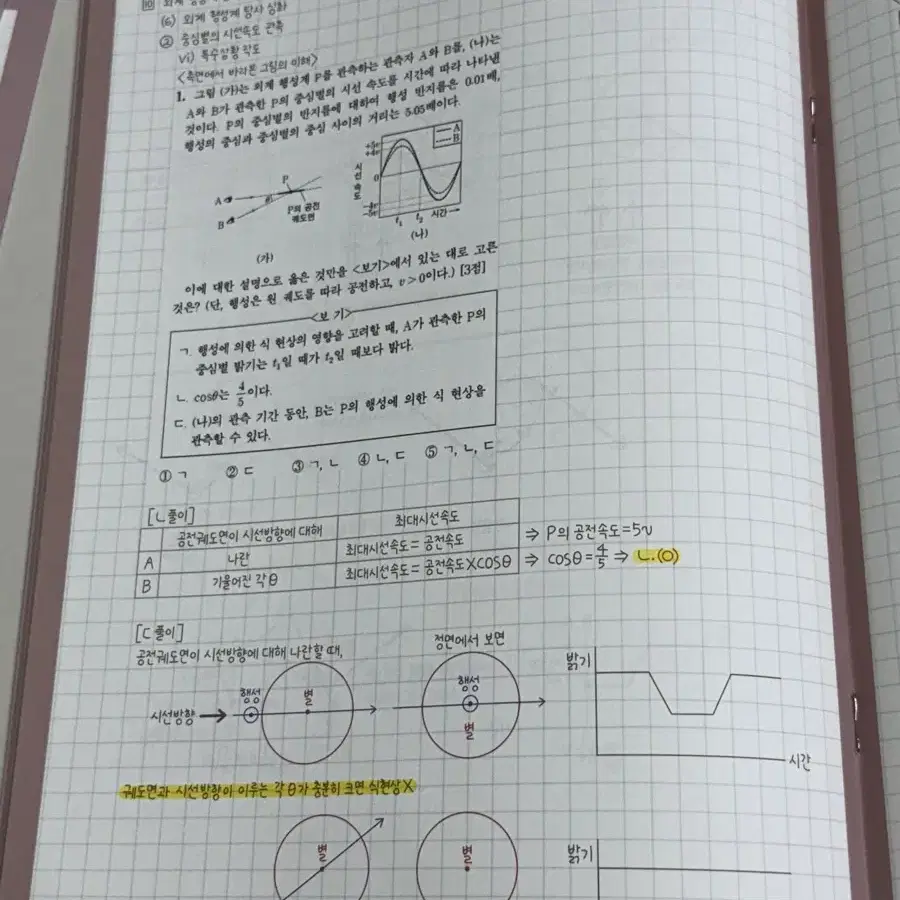 (6) 외계 행성계 탐사 심화
② 중심별의 시선속도 관측
vi) 특수상황 작도
<측면에서 바라본 그림의 이해>
1. 그림 (가)는 외계 행성계 P를 관측하는 관측자 A와 B를, (나)는
A와 B가 관측한 P의 중심별의 시선 속도를 시간에 따라 나타낸
것이다. P의 중심별의 반지름에 대하여 행성 반지름은 0.01배,
행성의 중심과 중심별의 중심 사이의 거리는 5.05배이다.
A
B
θ
P
P의 공전
궤도면
(가)
시선 속도
+5v
+4v
0
-4v
-5v
A
B
t₁ t₂ 시간
(나)
이에 대한 설명으로 옳은 것만을 <보기>에서 있는 대로 고른
것은? (단, 행성은 원 궤도를 따라 공전하고, v>0이다.) [3점]
<보 기>
ㄱ. 행성에 의한 식 현상의 영향을 고려할 때, A가 관측한 P의
중심별 밝기는 t₁일 때가 t₂일 때보다 밝다.
ㄴ. cosθ는 4/5이다.
ㄷ. (나)의 관측 기간 동안, B는 P의 행성에 의한 식 현상을
관측할 수 있다.
① ㄱ ② ㄷ ③ ㄱ, ㄴ ④ ㄴ, ㄷ ⑤ ㄱ, ㄴ, ㄷ
[ㄴ풀이]
공전궤도면이 시선방향에 대해 최대시선속도
A 나란 최대시선속도=공전속도 ⇒ P의 공전속도=5v
B 기울어진 각 θ 최대시선속도=공전속도×cosθ ⇒ cosθ=4/5 ⇒ ㄴ.(O)
[ㄷ풀이]
공전궤도면이 시선방향에 대해 나란할 때,
정면에서 보면
시선방향
행성
별
행성
별
밝기
시간
궤도면과 시선방향이 이루는 각 θ가 충분히 크면 식현상 X
별
별
밝기